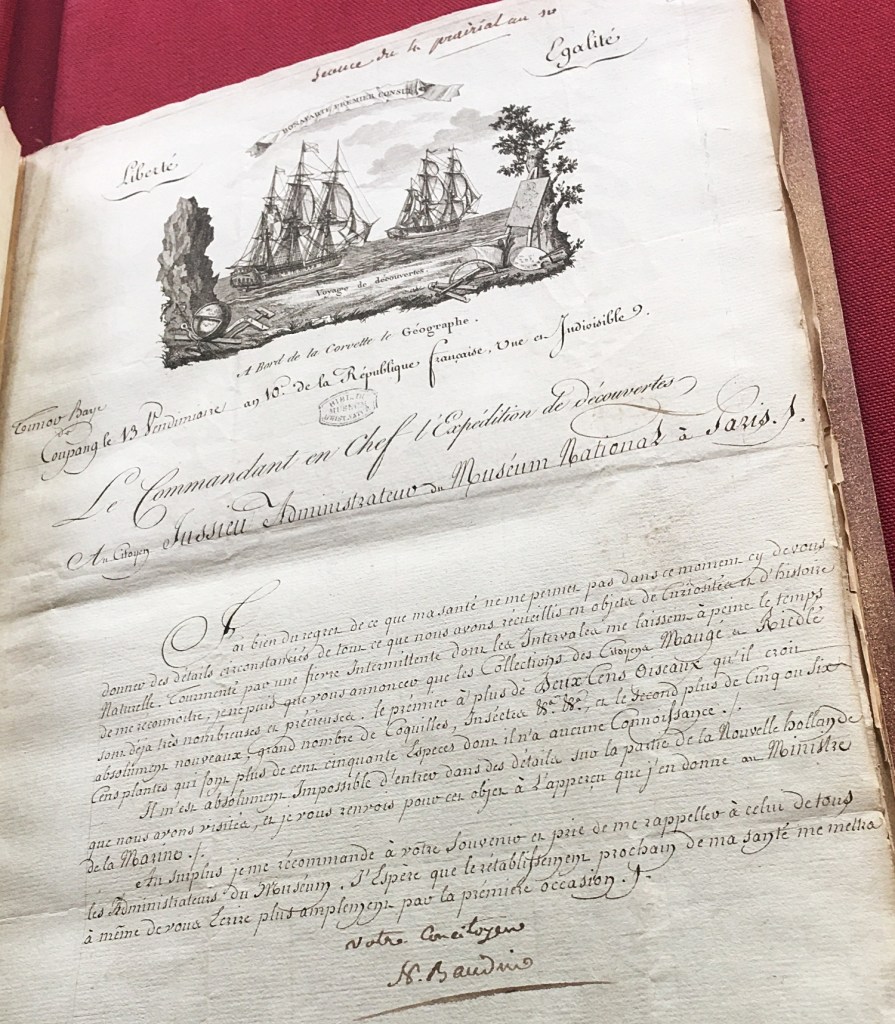 Seance du 14 prairial an 10
Liberté
Egalité
BONAPARTE PREMIER CONSUL
Voyage de découvertes.
A Bord de la Corvette le Géographe.
Timror Baye
de
Coupang le 13 Vendimiaire an 10e. de la République française, Une et Indivisible.
Le Commandant en Chef l'Expédition de découvertes
Au Citoyen Jussieu Administrateur du Muséum National à Paris.
J'ai bien du regret de ce que ma santé ne me permet pas dans ce moment cy de vous
donner des détails circonstanciés de tout ce que nous avons recueillis en objets de Curiosités et d'histoire
Naturelle. Tourmenté par une fievre Intermittente dont les Intervales me laissent à peine le temps
de me reconnoitre, je ne puis que vous annoncer que les Collections des Citoyens Maugé et Riedlé
sont déja très nombreuses et précieuses. le prémier à plus de Deux Cens Oiseaux qu'il croit
absolument nouveaux, grand nombre de Coquilles, Insectes &ca. &ca., et le second plus de Cinq ou Six
Cens plantes qui font plus de cent cinquante Especes dont il n'a aucune Connoissance.
Il m'est absolument Impossible d'entrer dans des détails sur la partie de la Nouvelle hollande
que nous avons visitée, et je vous renvois pour cet objet à L'apperçu que j'en donne au Ministre
de la Marine.
Au surplus je me récommande à vôtre Souvenir et prie de me rappeller à celui de tous
les Administrateurs du Muséum. J'Espere que le rétablissement prochain de ma santé me mettra
à même de vous Ecrire plus amplement par la prémiere occasion.
votre Concitoyen
N. Baudin